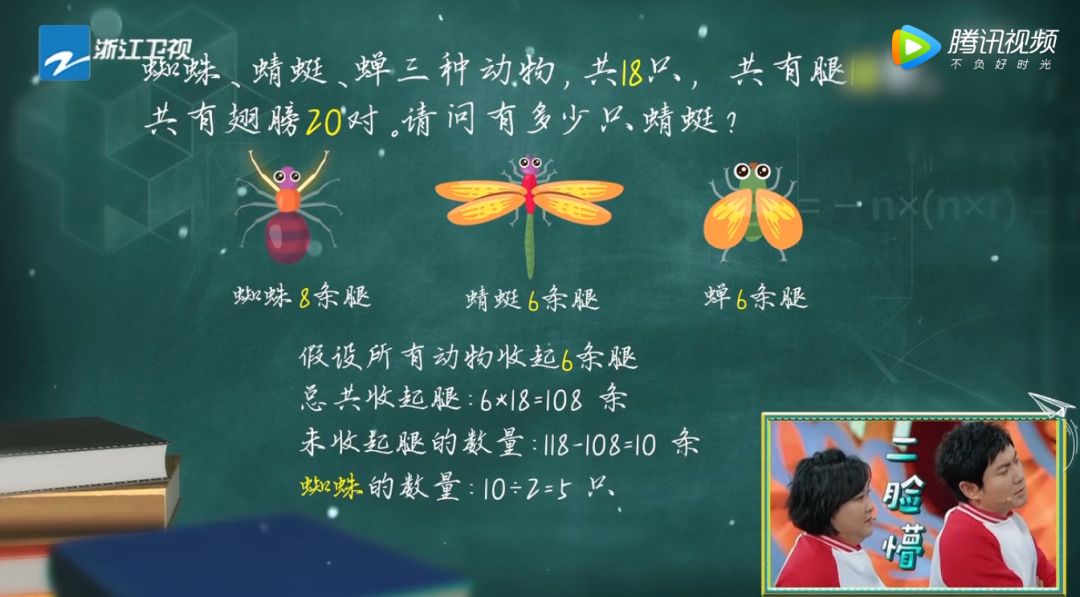 浙江卫视
腾讯视频
不负好时光
蜘蛛、蜻蜓、蝉三种动物,共18只, 共有腿
共有翅膀20对。请问有多少只蜻蜓?
蜘蛛8条腿
蜻蜓6条腿
蝉6条腿
假设所有动物收起6条腿
总共收起腿:6×18=108 条
未收起腿的数量:118-108=10 条
蜘蛛的数量:10÷2=5 只
二脸懵